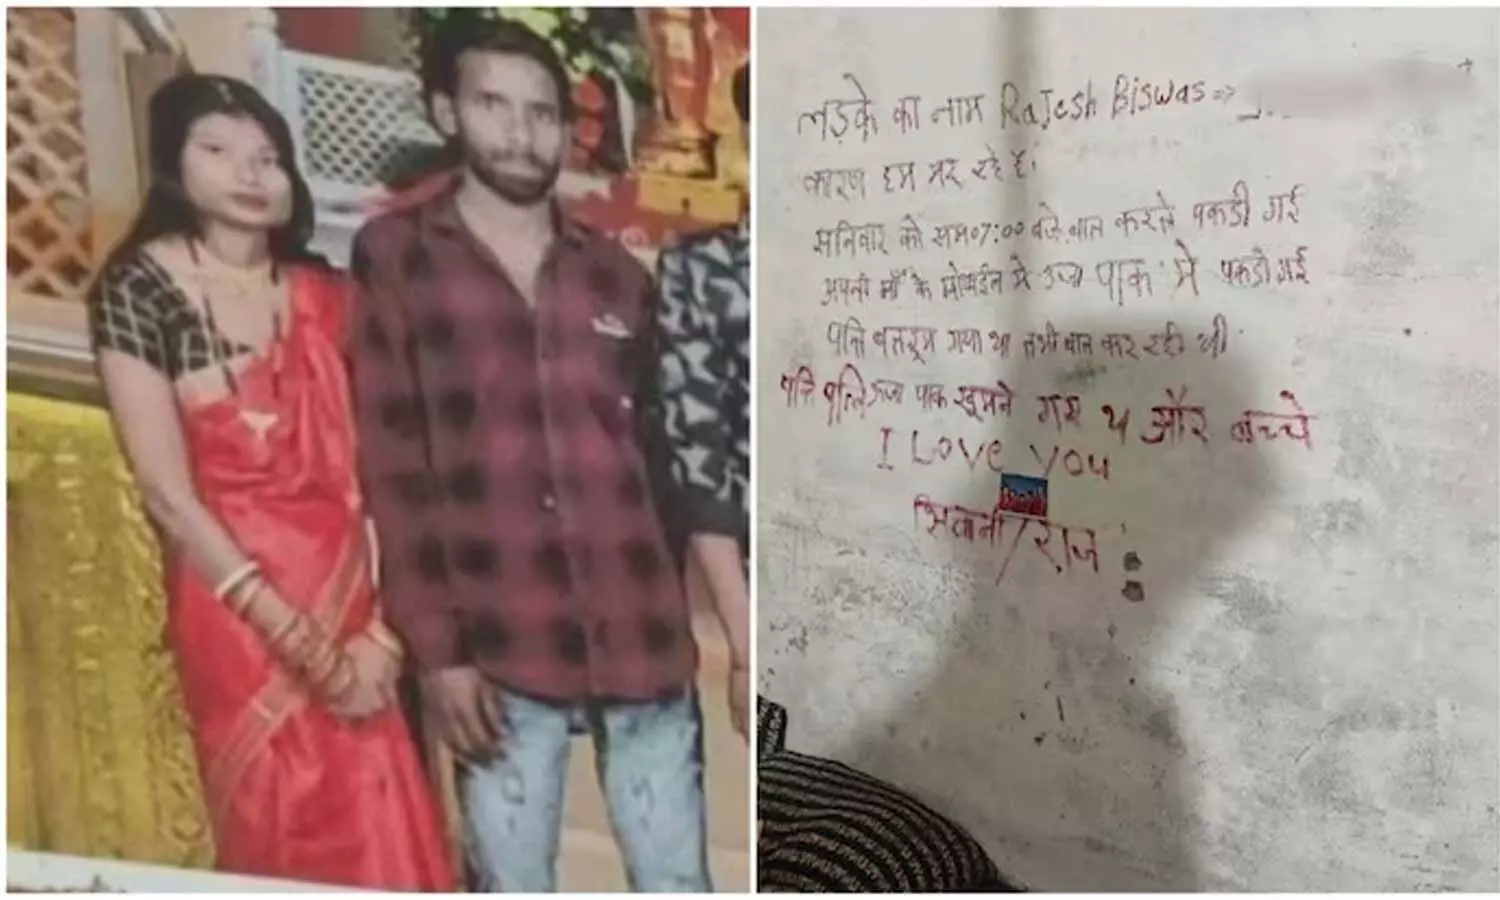 लड़के का नाम Rajesh Biswas =>
कारण हम मर रहे है।
सनिवार को सम 07:00 बजे बात करते पकडी गई
अपनी माँ के मोबाईल मे ऊर्जा पाक मे पकडी गई
पत्नि बातरूम गया था तभी बात कर रही थी
पति पत्नि ऊर्जा पाक घूमने गए थे और बच्चे
I Love You
शिवानी / राज :